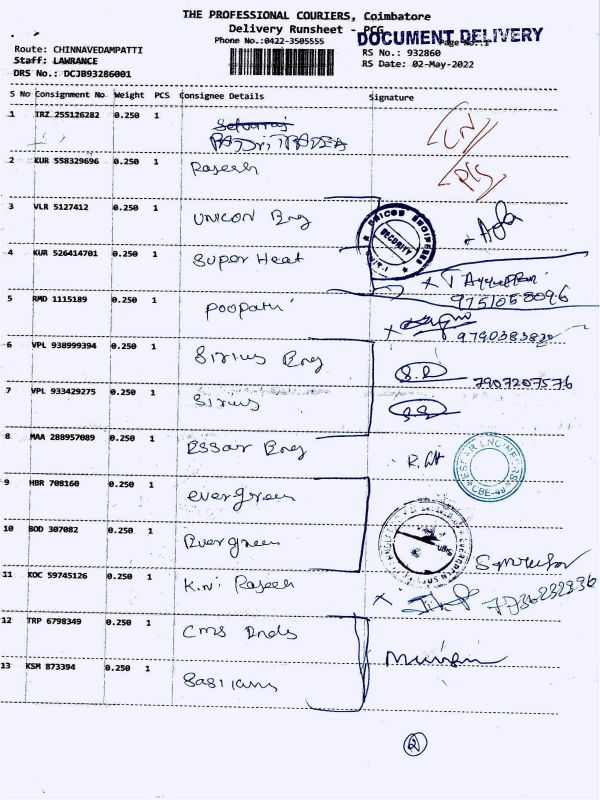 THE PROFESSIONAL COURIERS, Coimbatore
Delivery Runsheet - PCG
DOCUMENT DELIVERY
Phone No.:0422-3505555
Page No.:1
Route: CHINNAVEDAMPATTI
RS No.: 932860
Staff: LAWRANCE
RS Date: 02-May-2022
DRS No.: DCJB93286001
S No Consignment No Weight PCS Consignee Details Signature
1 TRZ 255126282 0.250 1
2 KUR 558329696 0.250 1 Rajesh
3 VLR 5127412 0.250 1 UNICON Eng
UNICON ENGINEERS SECURITY
4 KUR 526414701 0.250 1 Super Heat
9751058096
5 RMD 1115189 0.250 1 Poopathi
9790383820
6 VPL 938999394 0.250 1 Sirius Eng
7907207576
7 VPL 933429275 0.250 1 Sirius
8 MAA 288957089 0.250 1 Essar Eng
ENGINEERS CBE-49
9 HBR 708160 0.250 1 evergreen
10 BOD 307082 0.250 1 Evergreen
11 KOC 59745126 0.250 1 K.N. Rajesh
12 TRP 6798349 0.250 1 CMS
13 KSM 873394 0.250 1
2